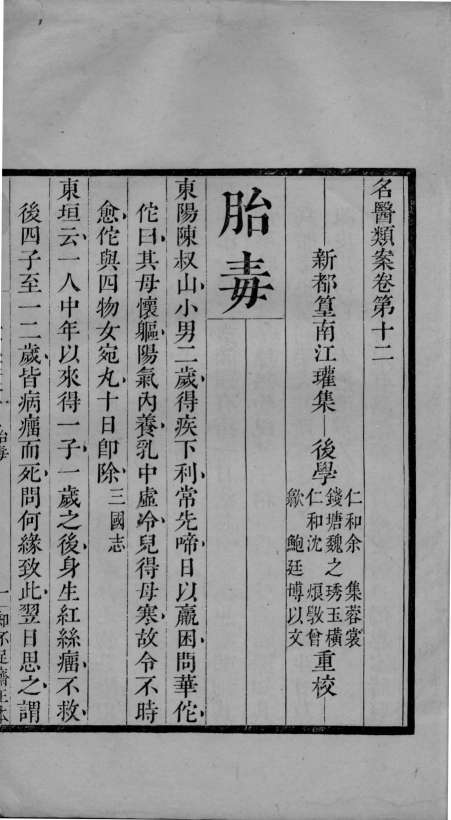 名醫類案卷第十二
新都篁南江瓘集
後學
仁和余 集蓉裳
錢塘魏之琇玉橫
仁和沈 烺敩曾
歙 鮑廷博以文
重校
胎毒
東陽陳叔山小男二歲得疾下利常先啼日以羸困問華佗
佗曰其母懷軀陽氣內養乳中虛冷兒得母寒故令不時
愈佗與四物女宛丸十日卽除三國志
東垣云一人中年以來得一子一歲之後身生紅絲瘤不救
後四子至一二歲皆病瘤而死問何緣致此翌日思之謂